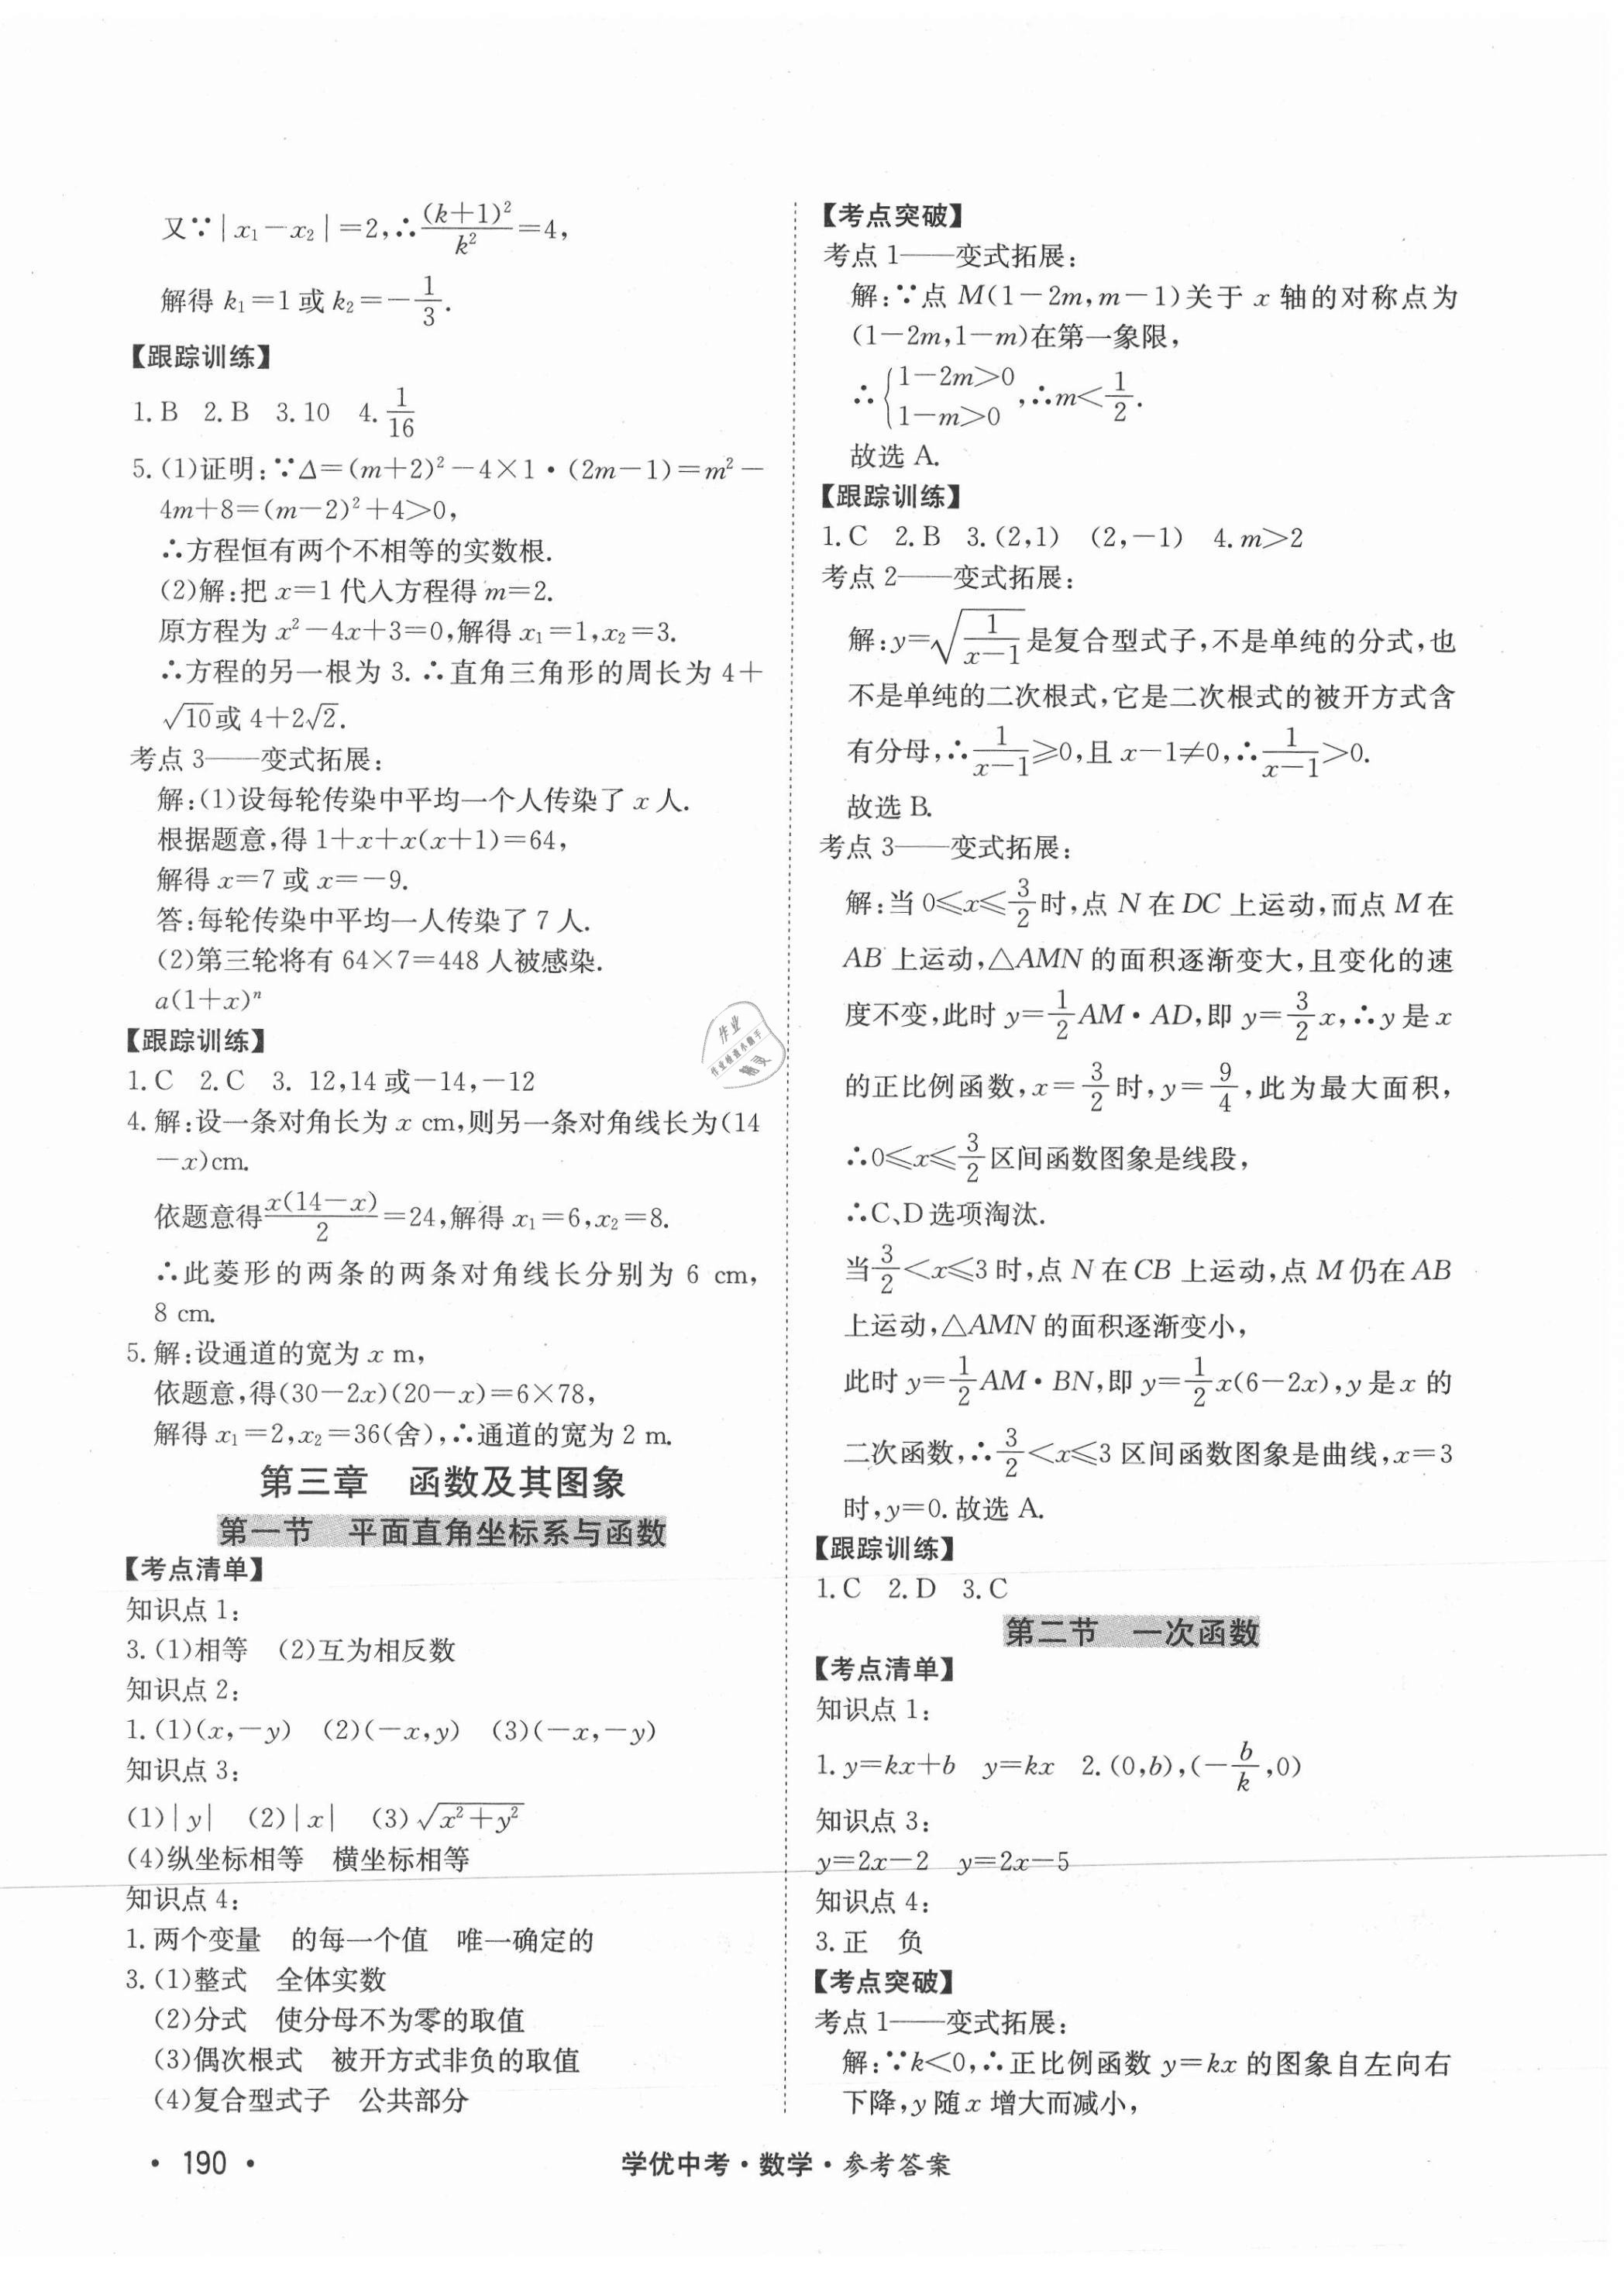 又∵|x₁－x₂|＝2,∴(k＋1)²/k²＝4,
解得 k₁＝1 或 k₂＝－1/3.
【跟踪训练】
1. B 2. B 3. 10 4. 1/16
5. (1)证明:∵Δ＝(m＋2)²－4×1·(2m－1)＝m²－
4m＋8＝(m－2)²＋4>0,
∴方程恒有两个不相等的实数根.
(2)解:把 x＝1 代入方程得 m＝2.
原方程为 x²－4x＋3＝0,解得 x₁＝1,x₂＝3.
∴方程的另一根为 3. ∴直角三角形的周长为 4＋
√10或 4＋2√2.
考点 3——变式拓展:
解:(1)设每轮传染中平均一个人传染了 x 人.
根据题意,得 1＋x＋x(x＋1)＝64,
解得 x＝7 或 x＝－9.
答:每轮传染中平均一人传染了 7 人.
(2)第三轮将有 64×7＝448 人被感染.
a(1＋x)ⁿ
【跟踪训练】
1. C 2. C 3. 12,14 或－14,－12
4. 解:设一条对角长为 x cm,则另一条对角线长为(14
－x)cm.
依题意得x(14－x)/2＝24,解得 x₁＝6,x₂＝8.
∴此菱形的两条的两条对角线长分别为 6 cm,
8 cm.
5. 解:设通道的宽为 x m,
依题意,得(30－2x)(20－x)＝6×78,
解得 x₁＝2,x₂＝36(舍),∴通道的宽为 2 m.
第三章 函数及其图象
第一节 平面直角坐标系与函数
【考点清单】
知识点 1:
3. (1)相等 (2)互为相反数
知识点 2:
1. (1)(x,－y) (2)(－x,y) (3)(－x,－y)
知识点 3:
(1)|y| (2)|x| (3)√(x²＋y²)
(4)纵坐标相等 横坐标相等
知识点 4:
1. 两个变量 的每一个值 唯一确定的
3. (1)整式 全体实数
(2)分式 使分母不为零的取值
(3)偶次根式 被开方式非负的取值
(4)复合型式子 公共部分
【考点突破】
考点 1——变式拓展:
解:∵点 M(1－2m,m－1)关于 x 轴的对称点为
(1－2m,1－m)在第一象限,
∴{1－2m>0
1－m>0,∴m<1/2.
故选 A.
【跟踪训练】
1. C 2. B 3. (2,1) (2,－1) 4. m>2
考点 2——变式拓展:
解:y＝√(1/(x－1))是复合型式子,不是单纯的分式,也
不是单纯的二次根式,它是二次根式的被开方式含
有分母,∴1/(x－1)≥0,且 x－1≠0,∴1/(x－1)>0.
故选 B.
考点 3——变式拓展:
解:当 0≤x≤3/2时,点 N 在 DC 上运动,而点 M 在
AB 上运动,△AMN 的面积逐渐变大,且变化的速
度不变,此时 y＝1/2AM·AD,即 y＝3/2x,∴y 是 x
的正比例函数,x＝3/2时,y＝9/4,此为最大面积,
∴0≤x≤3/2区间函数图象是线段,
∴C、D 选项淘汰.
当3/2<x≤3 时,点 N 在 CB 上运动,点 M 仍在 AB
上运动,△AMN 的面积逐渐变小,
此时 y＝1/2AM·BN,即 y＝1/2x(6－2x),y 是 x 的
二次函数,∴3/2<x≤3 区间函数图象是曲线,x＝3
时,y＝0. 故选 A.
【跟踪训练】
1. C 2. D 3. C
第二节 一次函数
【考点清单】
知识点 1:
1. y＝kx＋b y＝kx 2. (0,b),(－b/k,0)
知识点 3:
y＝2x－2 y＝2x－5
知识点 4:
3. 正 负
【考点突破】
考点 1——变式拓展:
解:∵k<0,∴正比例函数 y＝kx 的图象自左向右
下降,y 随 x 增大而减小,
作业
作业检查小能手
精灵
· 190 ·
学优中考·数学·参考答案